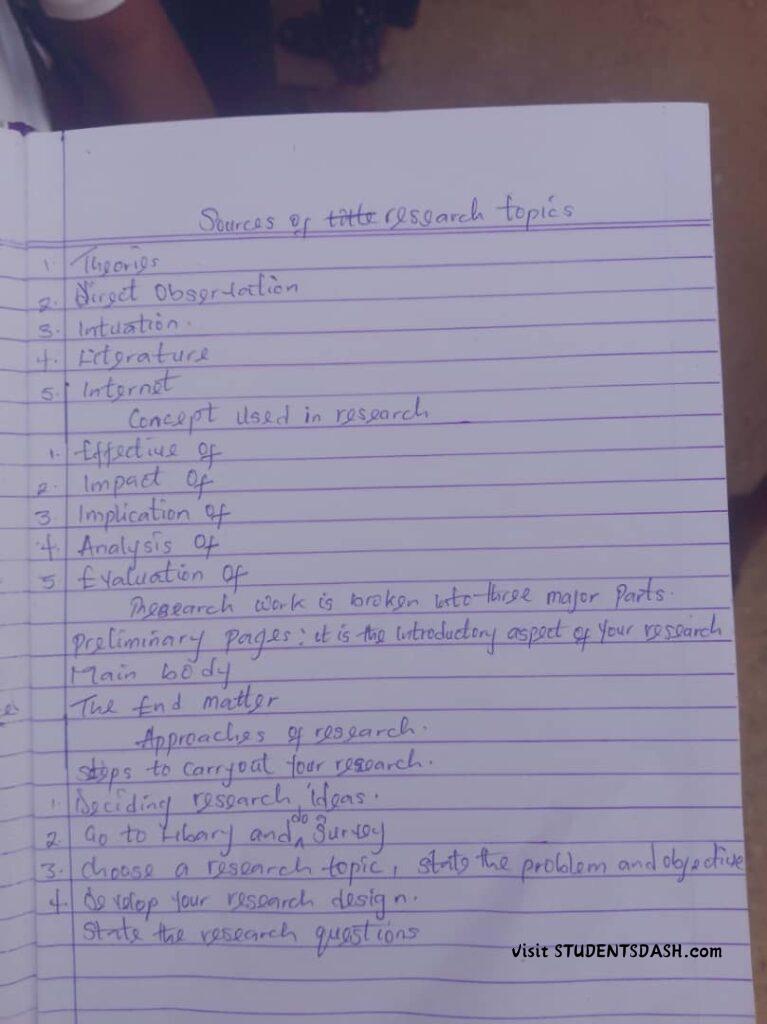 Sources of title research topics
1. Theories
2. Direct Observation
3. Intuation.
4. Literature
5. Internet
Concept used in research
1. Effective of
2. Impact of
3 Implication of
4. Analysis of
5 Evaluation of
Research work is broken into three major parts.
Preliminary pages: it is the introductory aspect of your research
Main body
The End matter
Approaches of research.
steps to carryout your research.
1. Deciding research ideas.
2. Go to Libary and do Survey
3. choose a research topic, state the problem and objective
4. Develop your research design.
State the research questions
visit STUDENTSDASH.com